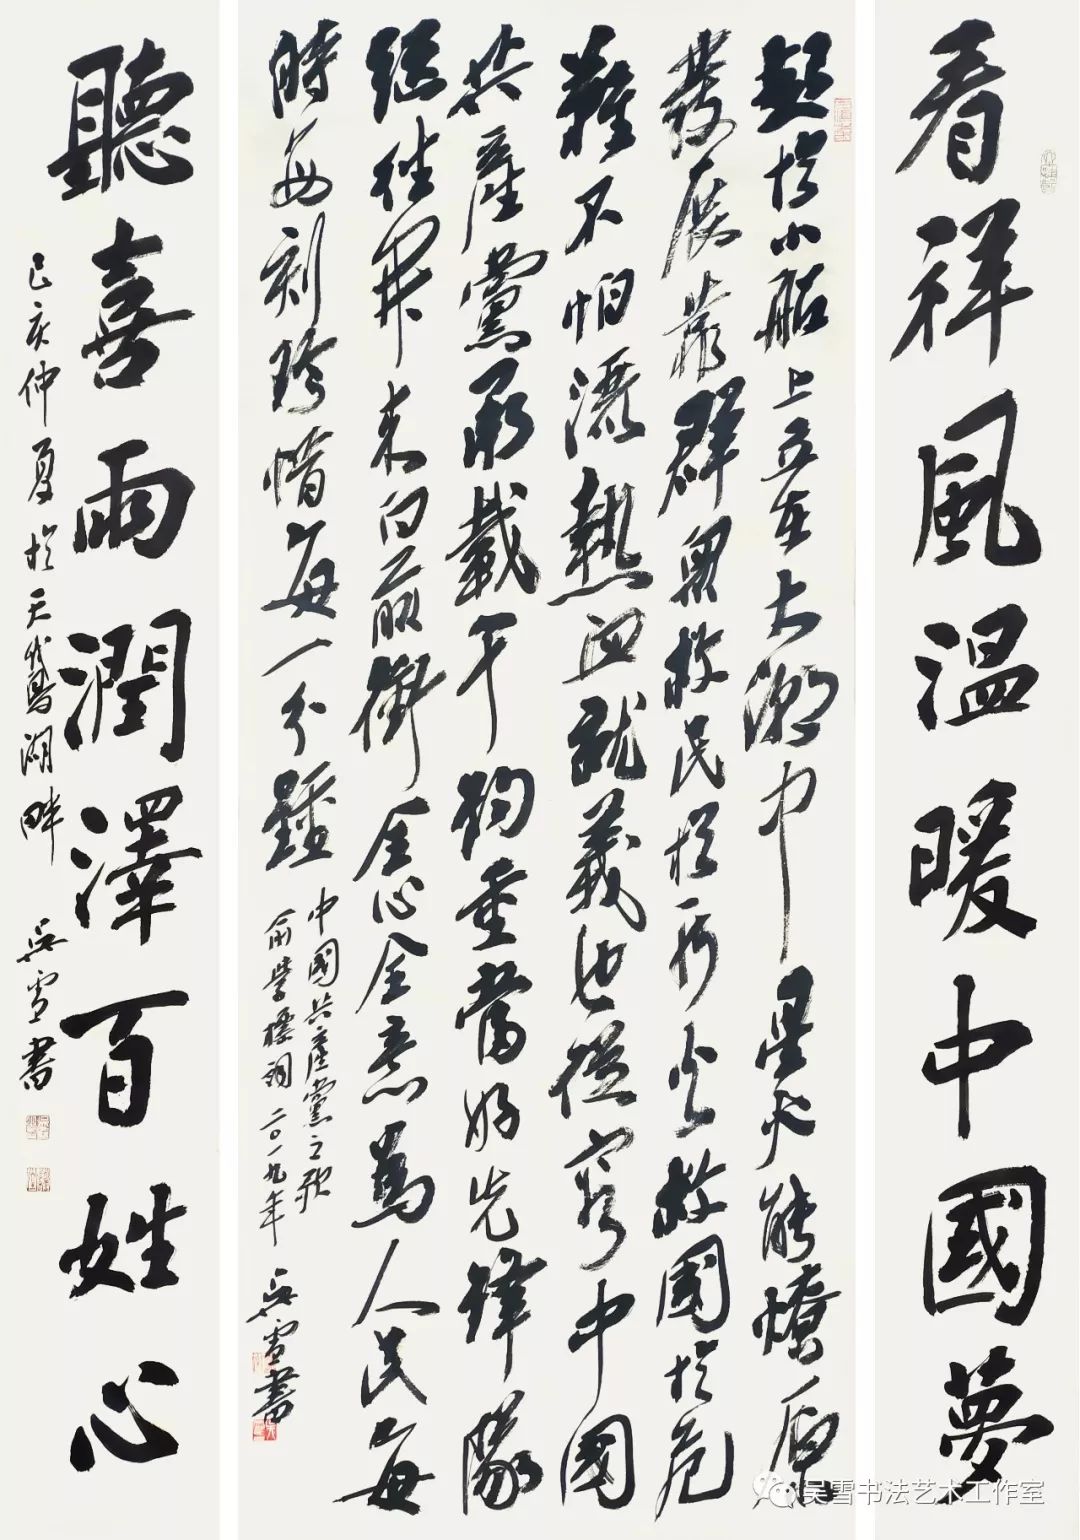 看祥風溫暖中國夢
起於小船上立在大潮中星火能燎原
發展靠群眾救民於水火救國於危
難不怕灑熱血就義也從容中國
共產黨承載千鈞重當好先鋒隊
繼往開來向前衝全心全意為人民每
時每刻珍惜每一分鐘
中國共產黨之歌
俞學標詞二〇一九年 吳雪書
聽喜雨潤澤百姓心
己亥仲夏於天鵝湖畔 吳雪書
吴雪书法艺术工作室